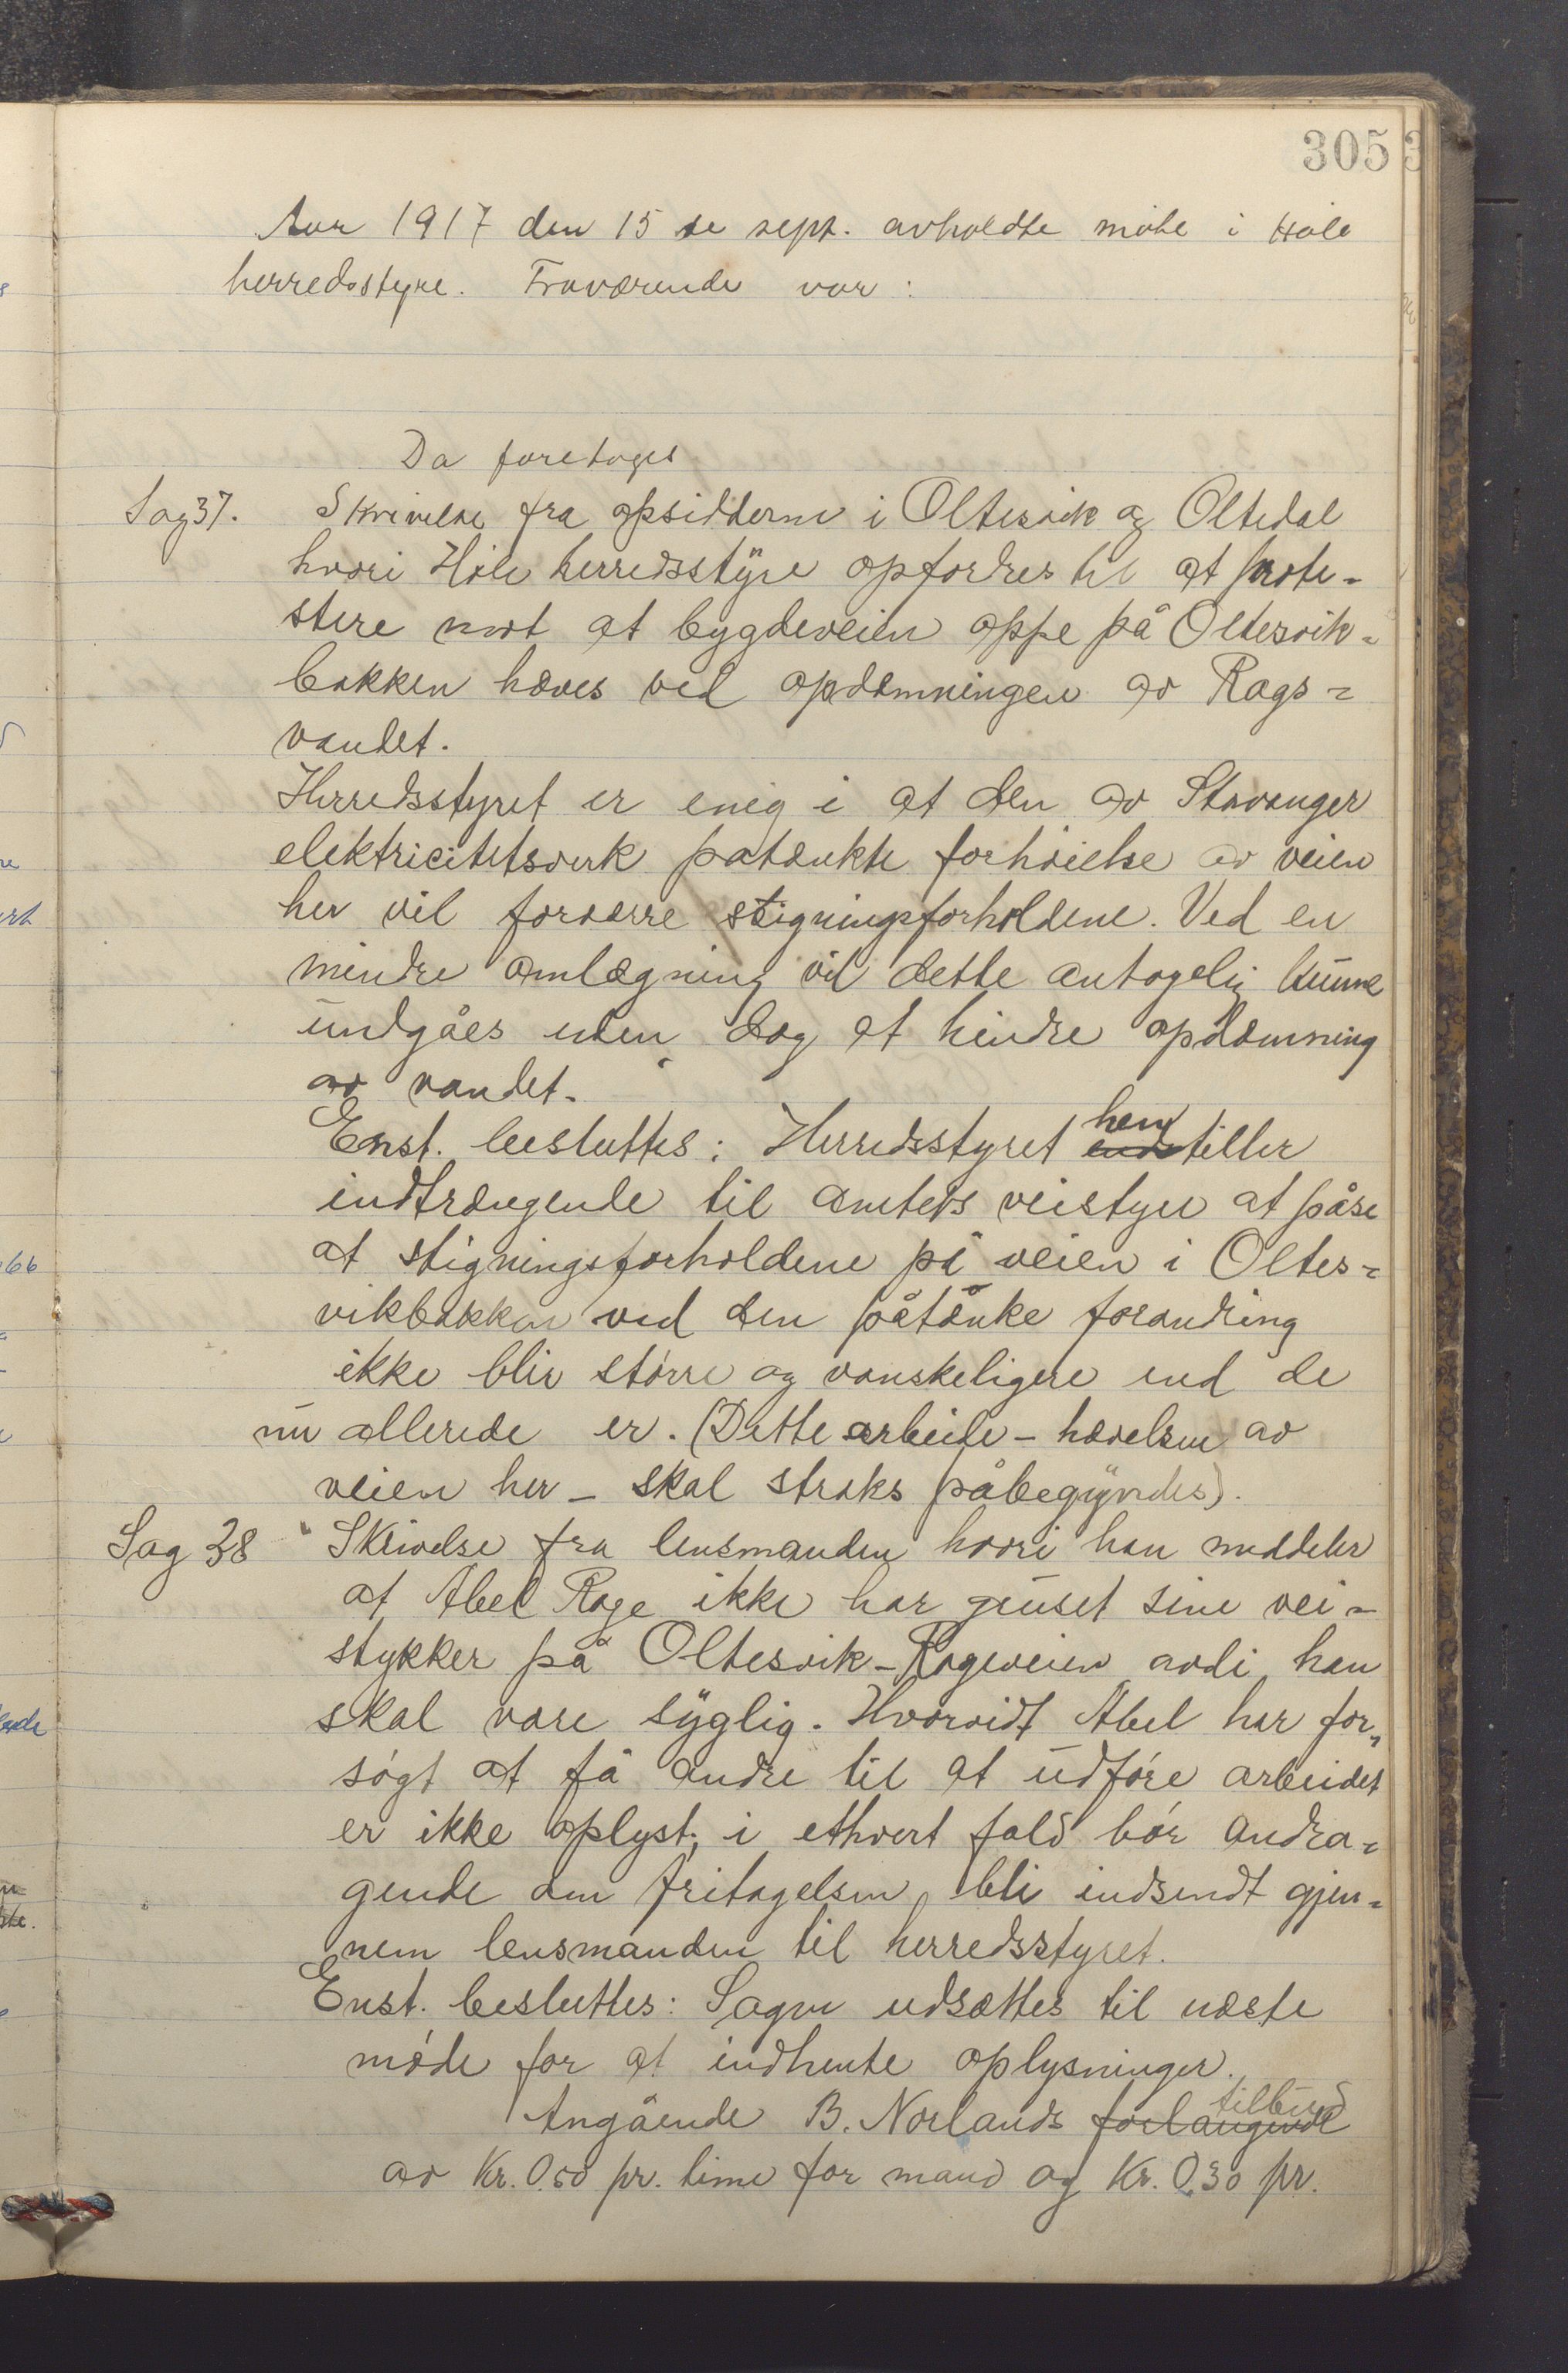 305
Aar 1917 den 15 de sept. avholdte møte i Høle
herredsstyre. Fraværende var:
Da foretoges
Sag 37. Skrivelse fra opsidderne i Oltesvik og Oltedal
hvori Høle herredsstyre opfordres til at prote-
stere mot at bygdeveien oppe på Oltesvik-
bakken hæves ved opdæmningen av Rags-
vandet.
Herredsstyret er enig i at den av Stavanger
elektricitetsverk påtænkte forhøielse av veien
her vil forværre stigningsforholdene. Ved en
mindre omlægning vil dette antagelig kunne
undgåes uten dog at hindre opdæmning
av vandet.
Enst. besluttes: Herredsstyret hen
endstiller
indtrængende til amtets veistyre at påse
at stigningsforholdene på veien i Oltes-
vikbakken ved den påtænke forandring
ikke blir større og vanskeligere end de
nu allerede er. (Dette arbeide - hævelsen av
veien her - skal straks påbegyndes).
Sag 38 Skrivelse fra lensmanden hvori han meddeler
at Abel Rage ikke har gruset sine vei-
stykker på Oltesvik-Rageveien avdi han
skal være syglig. Hvorvidt Abel har for-
søgt at få andre til at udføre arbeidet
er ikke oplyst; i ethvert fald bør andra-
gende om fritagelsen bli indsendt gjen-
nem lensmanden til herredsstyret.
Enst. besluttes: Sagen udsættes til næste
møde for at indhente oplysninger.
tilbud
Angående B. Norlands forlangende
av Kr. 0.50 pr. time for mand og Kr. 0.30 pr.